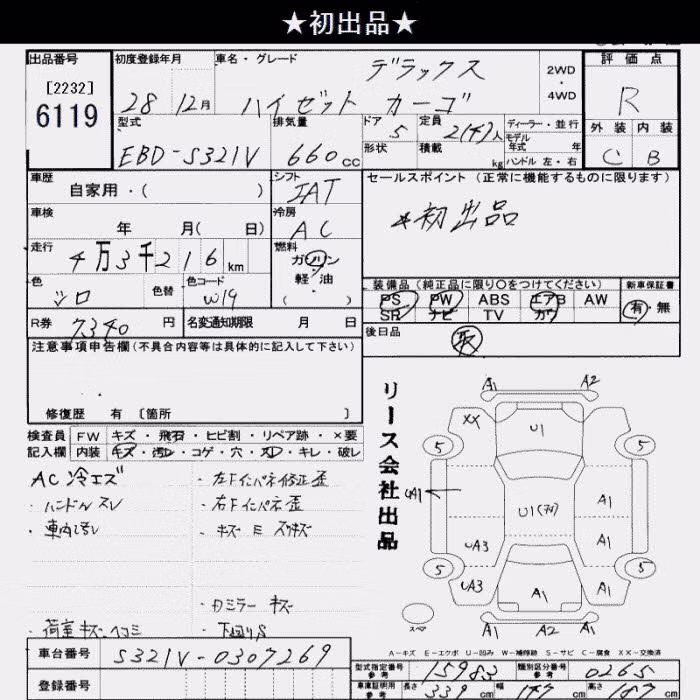 ★初出品★
出品番号
[2232]
6119
初度登録年月
28 12月
車名・グレード
デラックス
ハイゼット カーゴ
2WD
・
4WD
評価点
R
外装 内装
C B
型式
EBD-S321V
排気量
660cc
ドア
5
形状
定員
2(4)人
積載
kg
ディーラー・並行
モデル年式 年
ハンドル 左・右
車歴
自家用・( )
シフト
IAT
車検
年 月( 日)
冷房
AC
走行
4万3千216km
燃料
ガソリン
軽・油
( )
色
シロ
色替
色コード
W19
R券
7340円
名変通知期限 月 日
セールスポイント(正常に機能するものに限ります)
初出品
装備品(純正品に限り○をつけてください)
PS PW ABS エアB AW
SR ナビ TV カワ
新車保証書
有・無
後日品
取
注意事項申告欄(不具合内容等は具体的に記入して下さい)
修復歴 有 [箇所 ]
検査員記入欄
FW キズ・飛石・ヒビ割・リペア跡・×要
内装 キズ・汚レ・コゲ・穴・スレ・キレ・破レ
AC冷エズ
・ハンドルスレ
・車内汚レ
・荷室キズ、ヘコミ
・左Fインパネ修正歪
・右Fインパネ歪
・キズ E スリキズ
・ミラーキズ
・下回りS
リース会社出品
A1 A2
XX U1
5 5
UA1 U1 A1
UA3 A1
5 5
UA3 A1 A1
A1 A2 A1
スペア
A-キズ E-エクボ U-凹み W-補修跡 S-サビ C-腐食 XX-交換済
車台番号
S321V-0307269
登録番号
型式指定番号
参考
15983
類別区分番号
参考
0265
車庫証明用
参考
長さ 339cm
幅 147cm
高さ 187cm